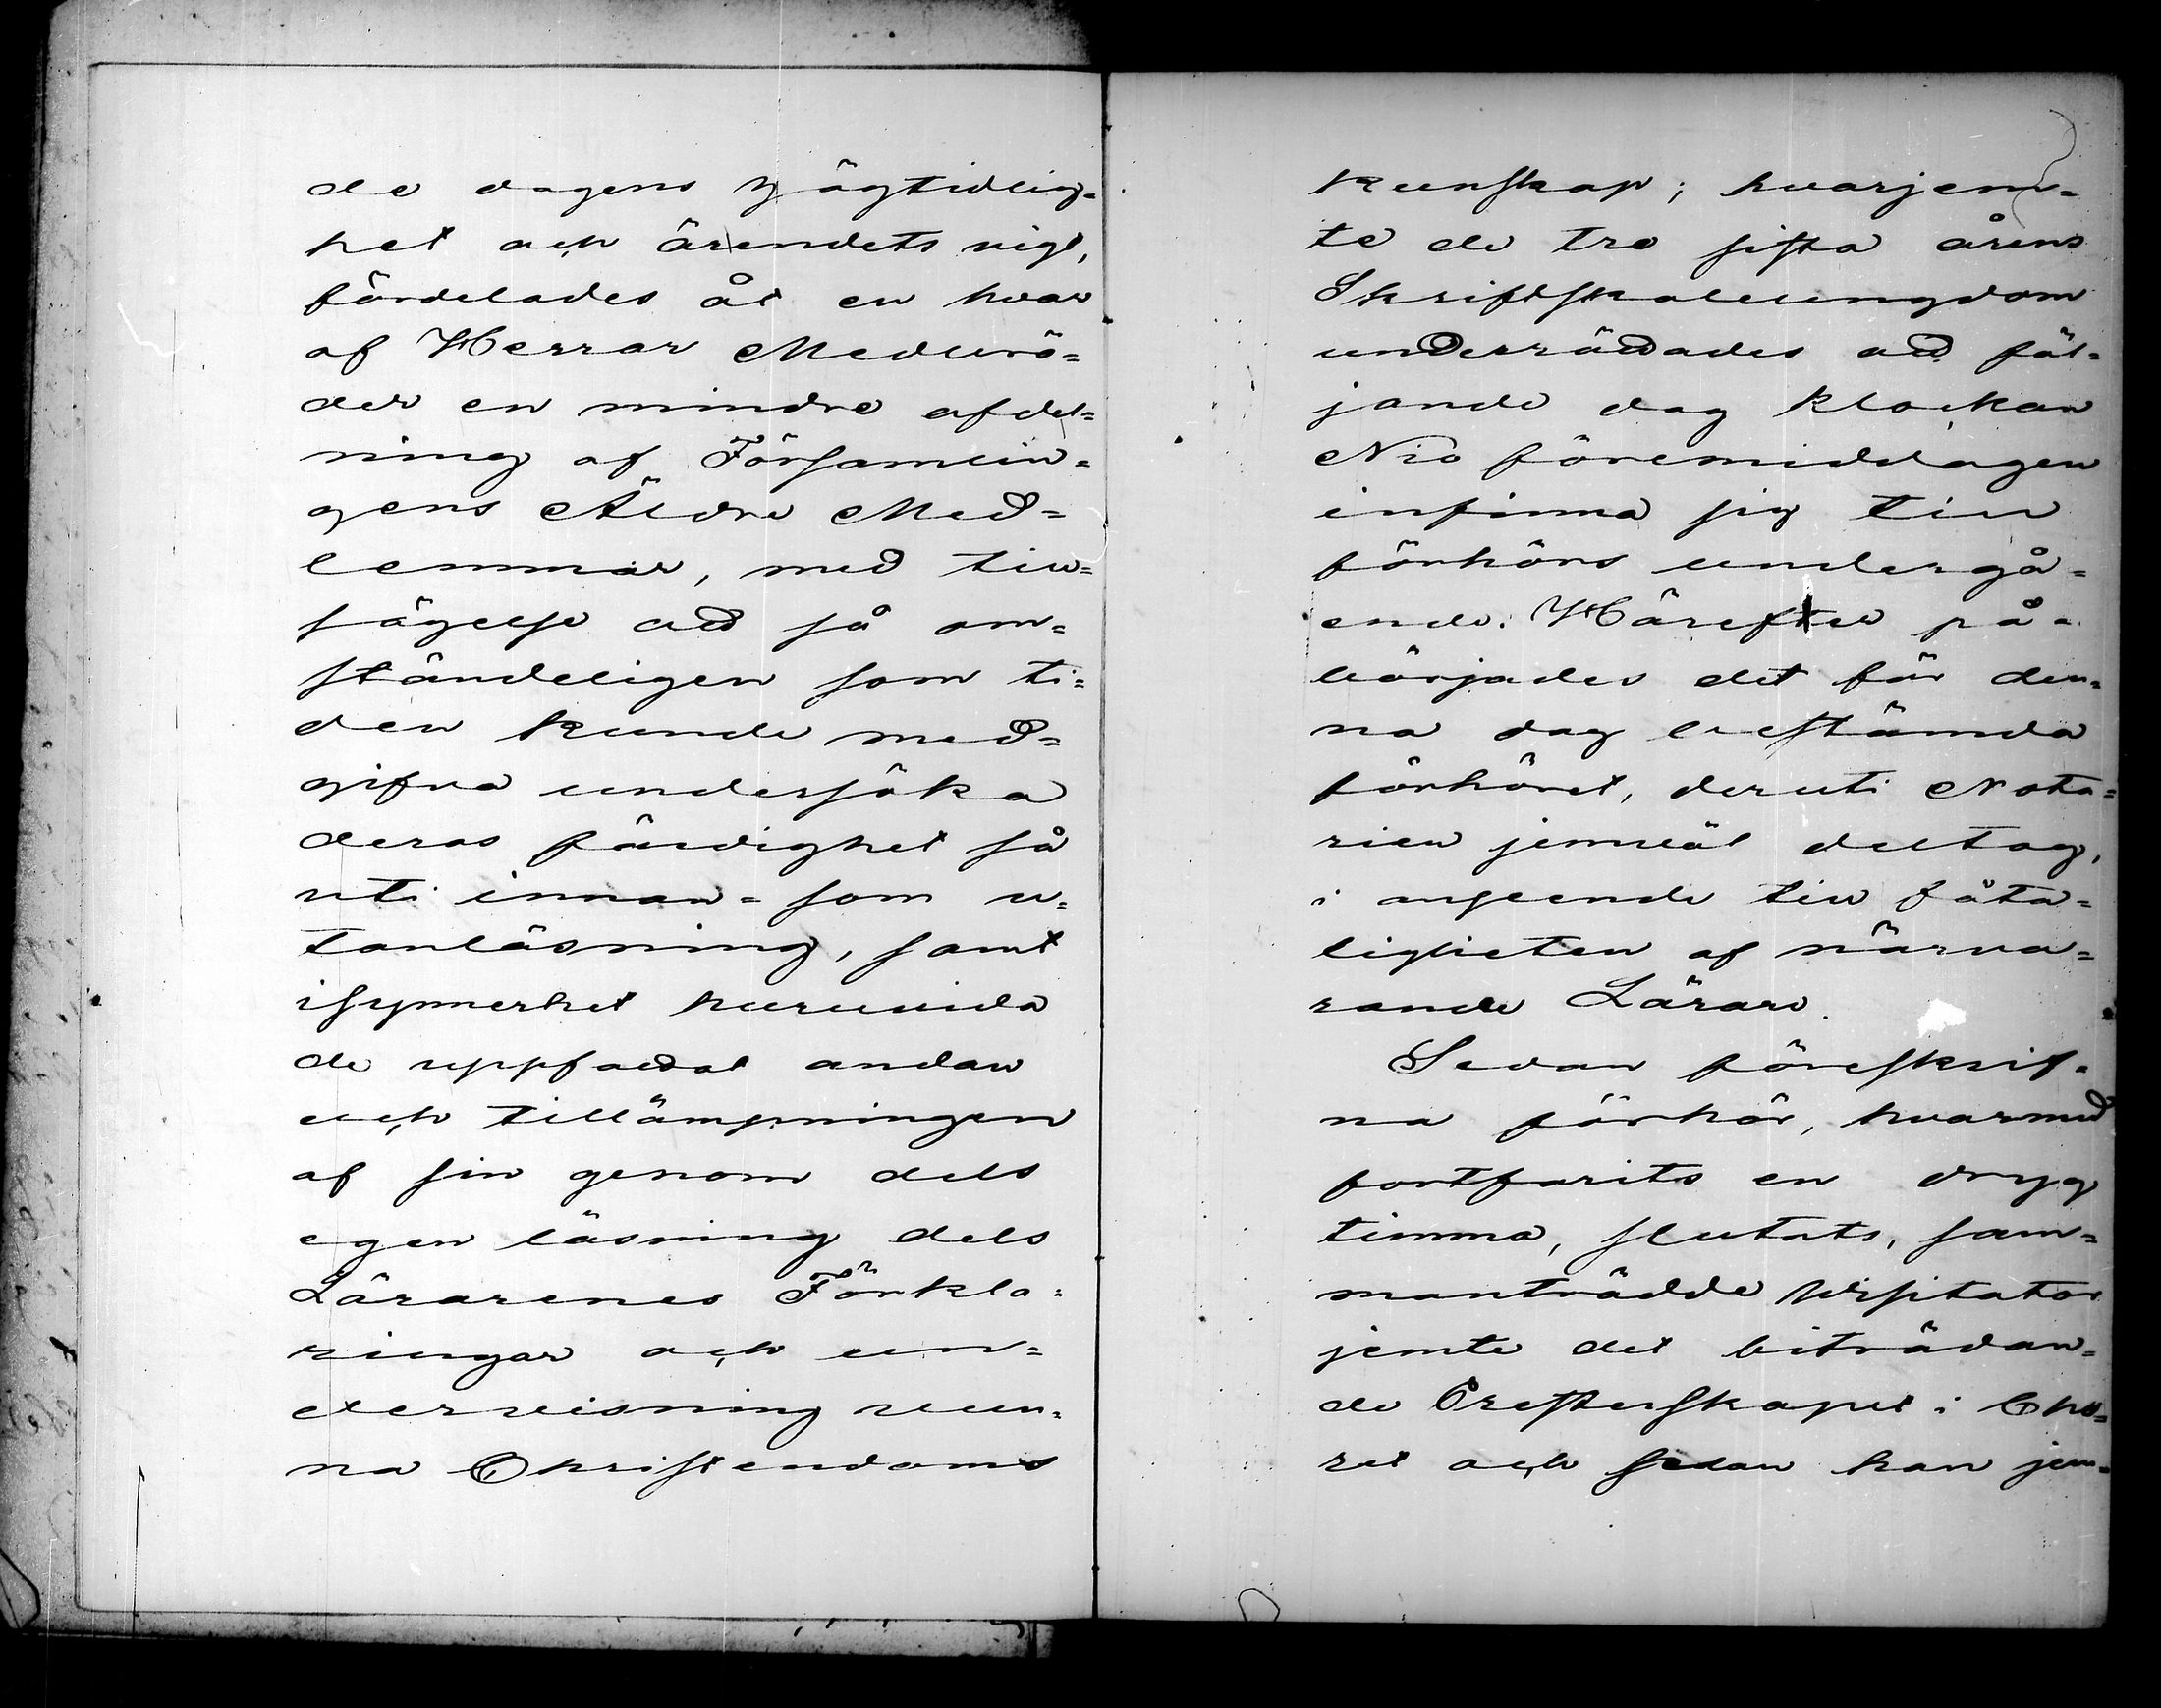 de dagens högtidlig=
het och ärendets vigt,
fördelades åt en hvar
af Herrar Medbrö=
der en mindre afdel=
ning af Församlin=
gens Äldre Med=
lemmar, med till=
sägelse att så om=
ständeligen som ti=
den kunde med=
gifva undersöka
deras färdighet så
uti innan= som u=
tanläsning, samt
isynnerhet huruvida
de uppfattat andan
och tillämpningen
af sin genom dels
egen läsning dels
Lärarenes Förkla=
ringar och un=
dervisning vun=
na Christendoms
kunskap; hvarjem=
te de tre sista årens
Skriftskoleungdom
underrättades att föl=
jande dag klockan
Nio föremiddagen
infinna sig till
förhörs undergå=
ende. Härefter på=
börjades det för den=
na dag bestämda
förhöret, deruti Nota=
rien jemväl deltog,
i anseende till fåta=
ligheten af närva=
rande Lärare.
Sedan föreskrif=
na förhör, hvarmed
fortfarits en dryg
timma, slutats, sam=
manträdde Visitator
jemte det biträdan=
de Presterskapet i Cho=
ret och sedan han jem=